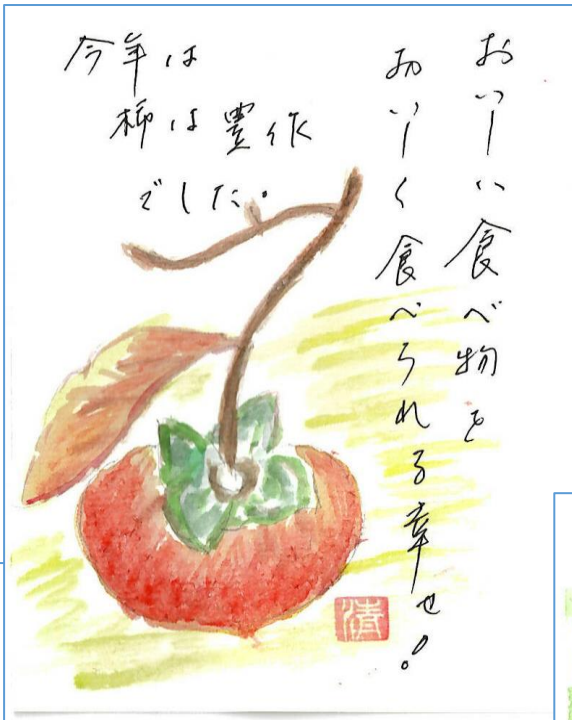 おいしい食べ物を
おいしく食べられる幸せ!
今年は
柿は豊作
でした。
清